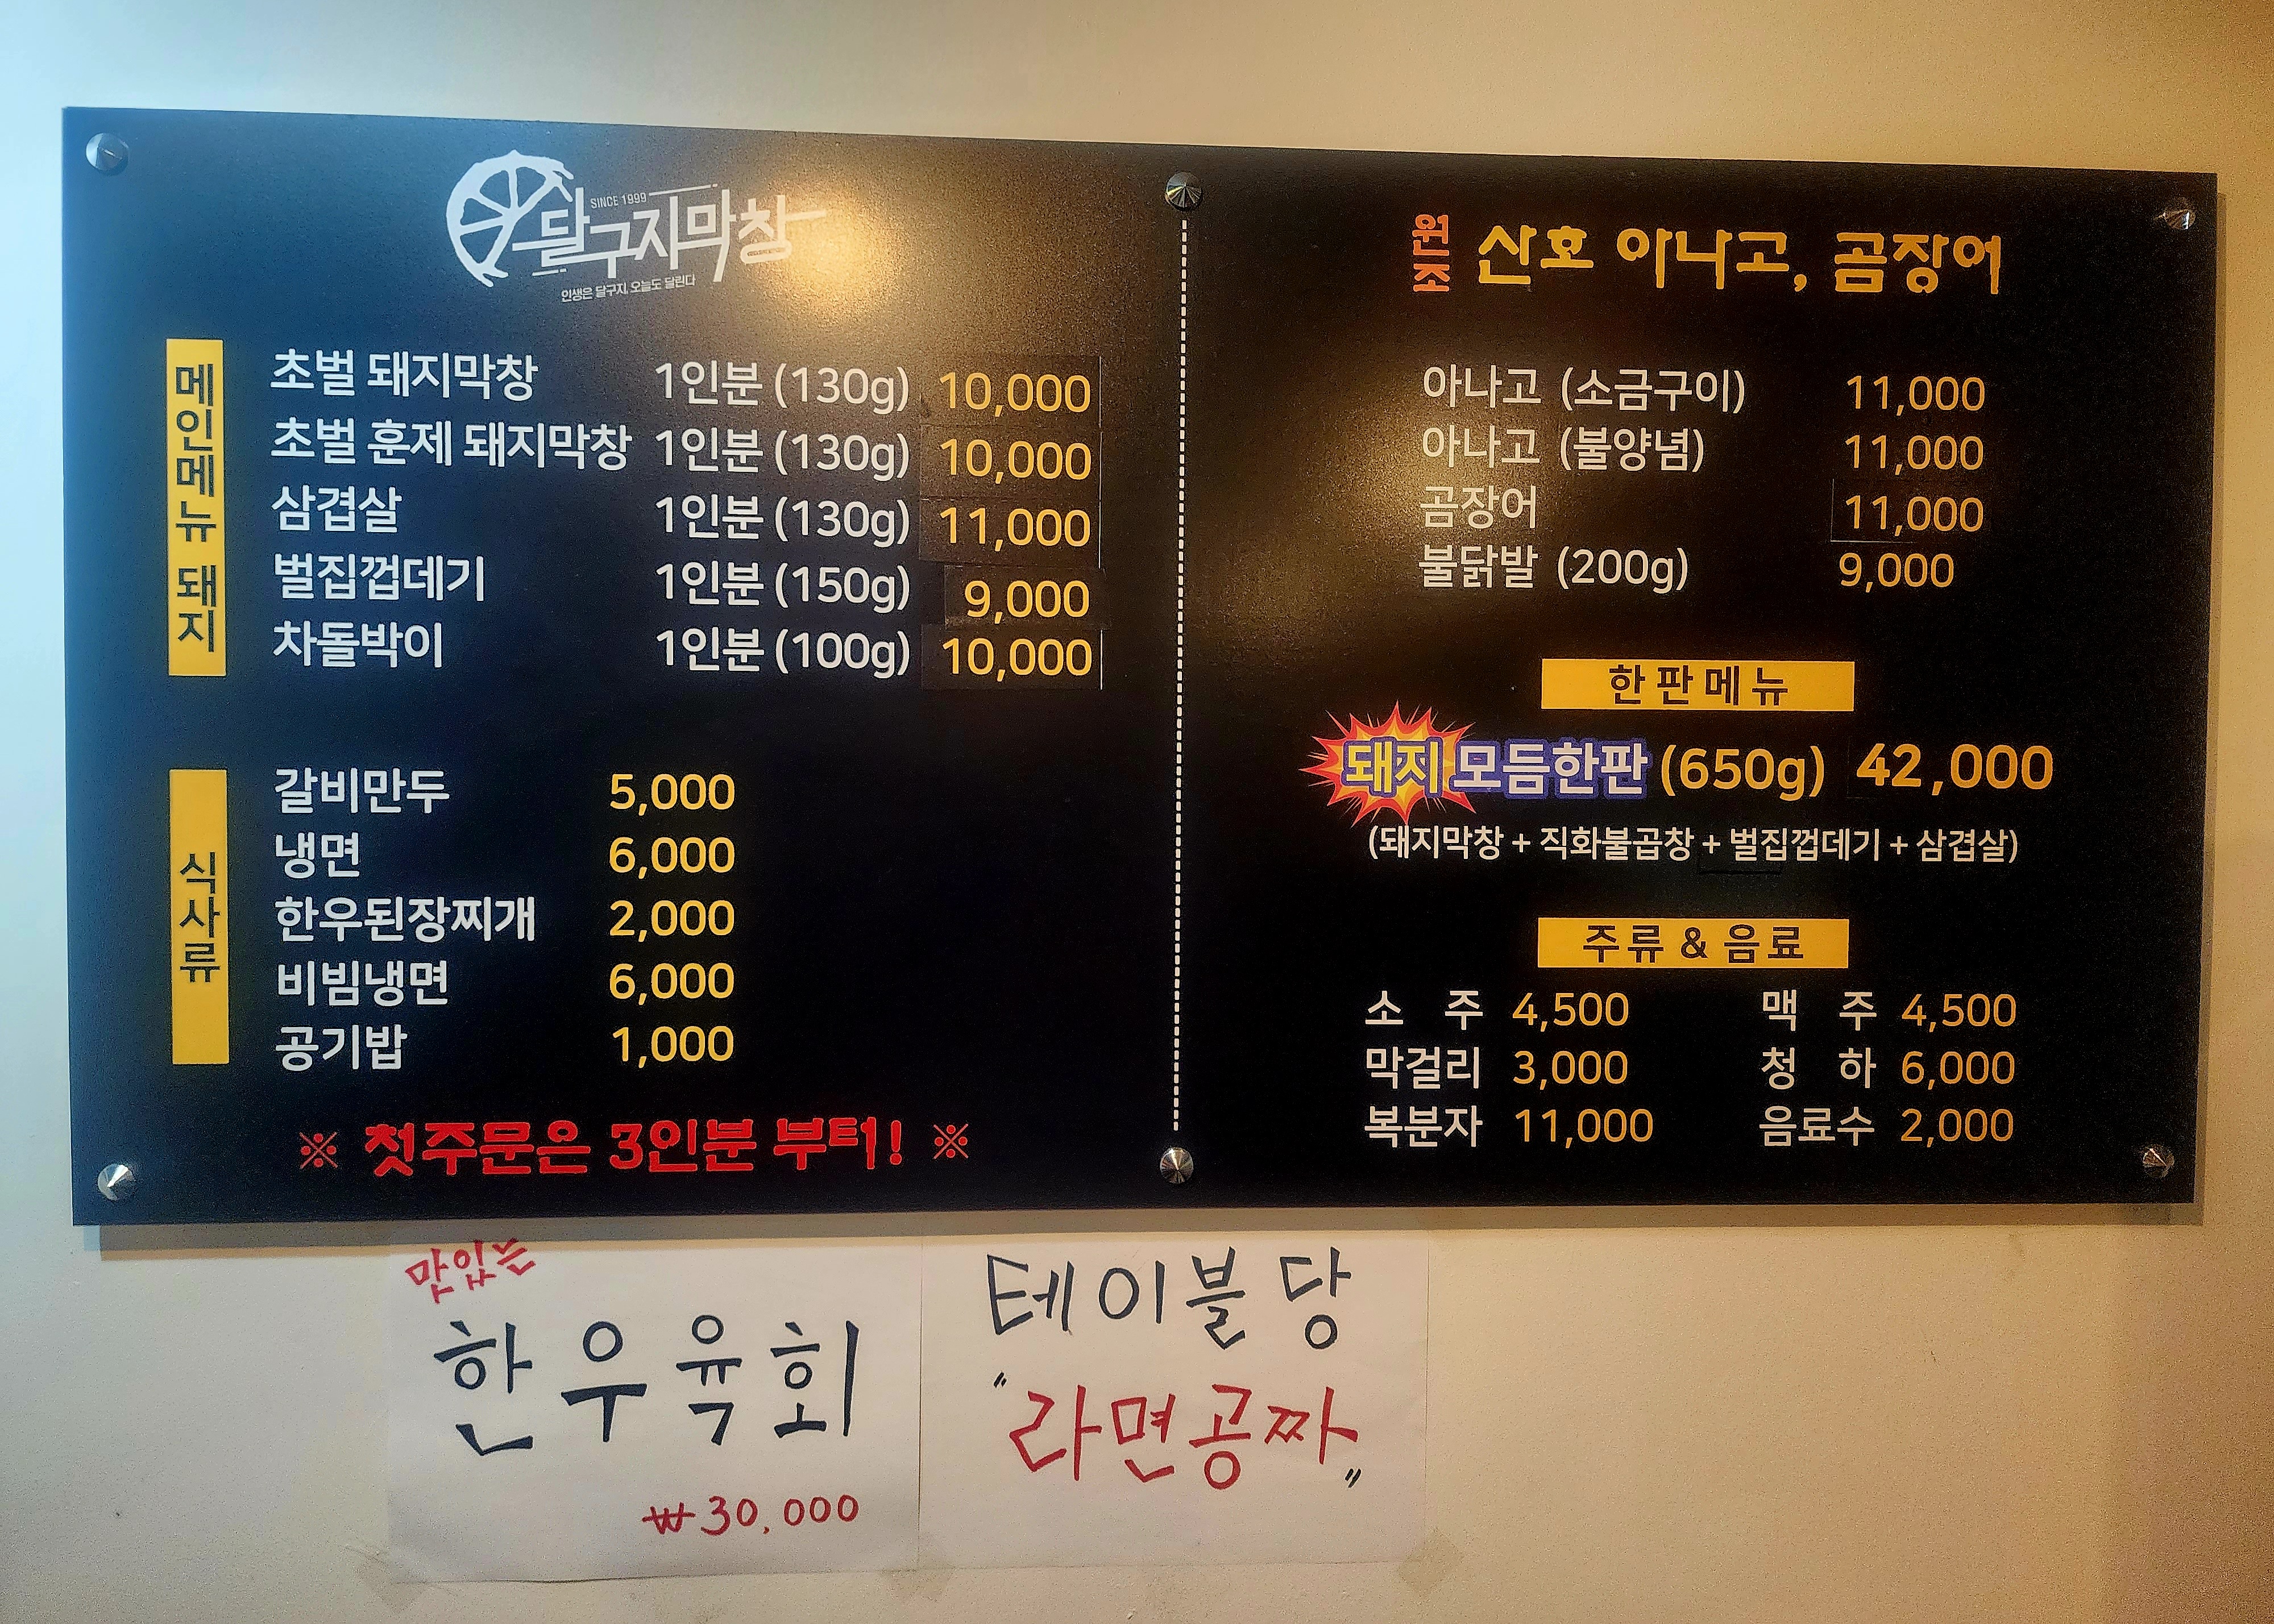 SINCE 1999
달구지막창
인생은 달구지, 오늘도 달린다
메인메뉴 돼지
초벌 돼지막창 1인분 (130g) 10,000
초벌 훈제 돼지막창 1인분 (130g) 10,000
삼겹살 1인분 (130g) 11,000
벌집껍데기 1인분 (150g) 9,000
차돌박이 1인분 (100g) 10,000
식사류
갈비만두 5,000
냉면 6,000
한우된장찌개 2,000
비빔냉면 6,000
공기밥 1,000
※ 첫주문은 3인분 부터! ※
원조 산호 아나고, 곰장어
아나고 (소금구이) 11,000
아나고 (불양념) 11,000
곰장어 11,000
불닭발 (200g) 9,000
한판메뉴
돼지 모듬한판 (650g) 42,000
(돼지막창 + 직화불곱창 + 벌집껍데기 + 삼겹살)
주류 & 음료
소 주 4,500 맥 주 4,500
막걸리 3,000 청 하 6,000
복분자 11,000 음료수 2,000
맛있는
한우육회
₩30,000
테이블당
"라면공짜"